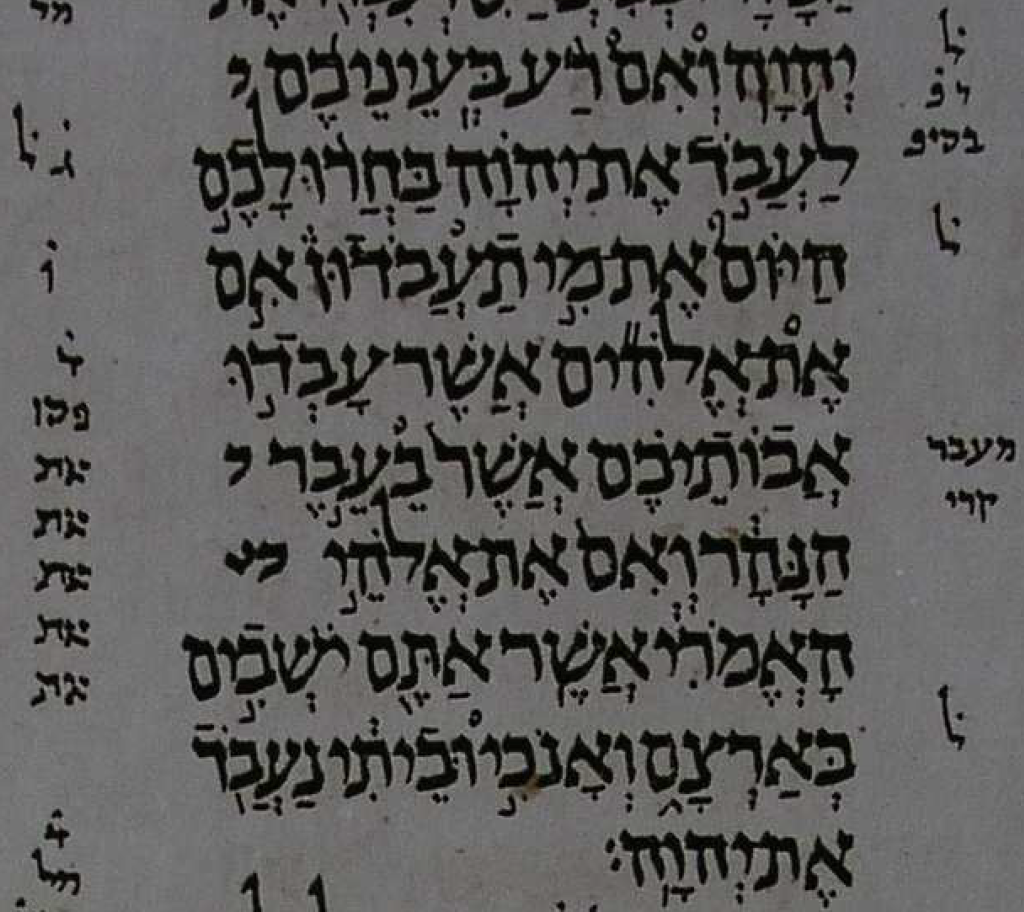 יְהֹוָה וְאִם֩ רַ֨ע בְּֽעֵינֵיכֶ֜ם
לַעֲבֹ֣ד אֶת יְהוָ֗ה בַּחֲר֨וּ לָכֶ֣ם
הַיּוֹם֮ אֶת מִ֣י תַעֲבֹדוּן֒ אִ֣ם
אֶת אֱלֹהִ֞ים אֲשֶׁר עָבְד֣וּ
אֲבוֹתֵיכֶ֗ם אֲשֶׁר֙ בֵעֵ֣בֶר
הַנָּהָ֔ר וְאִם֙ אֶת אֱלֹהֵ֣י
הָאֱמֹרִ֔י אֲשֶׁ֥ר אַתֶּ֖ם יֹשְׁבִ֣ים
בְּאַרְצָ֑ם וְאָנֹכִ֣י וּבֵיתִ֔י נַעֲבֹ֖ד
אֶת יְהוָֽה׃
מעבר
קרי
את
את
את
את
את